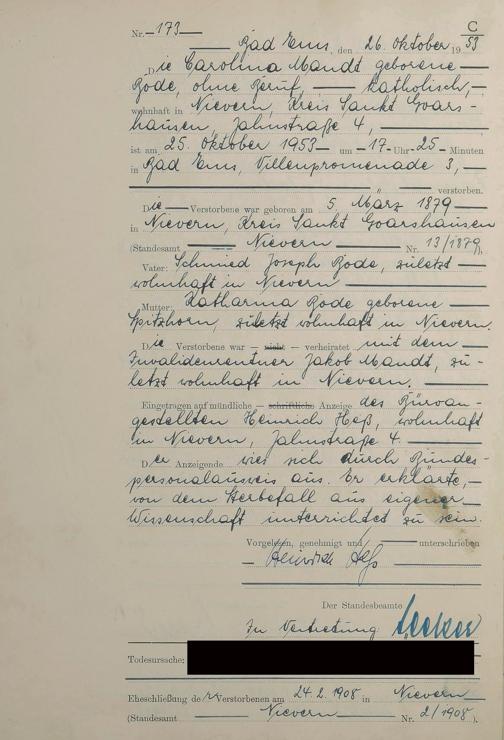 C
Nr. 173
Bad Ems, den 26. Oktober 1953
Die Carolina Mandt geborene
Bode, ohne Beruf, katholisch,
wohnhaft in Nievern, Kreis Sankt Goars-
hausen, Jahnstraße 4,
ist am 25. Oktober 1953 um 17 Uhr 25 Minuten
in Bad Ems, Villenpromenade 3,
verstorben.
Die Verstorbene war geboren am 5. März 1879
in Nievern, Kreis Sankt Goarshausen
(Standesamt Nievern Nr. 13/1879).
Vater: Schmied Joseph Bode, zuletzt
wohnhaft in Nievern
Mutter: Katharina Bode geborene
Spitzhorn, zuletzt wohnhaft in Nievern.
Die Verstorbene war — nicht — verheiratet mit dem
Invalidenrentner Jakob Mandt, zu-
letzt wohnhaft in Nievern.
Eingetragen auf mündliche — schriftliche — Anzeige des Büroan-
gestellten Heinrich Heß, wohnhaft
in Nievern, Jahnstraße 4.
Der Anzeigende wies sich durch Bundes-
personalausweis aus. Er erklärte,
von dem Sterbefall aus eigener
Wissenschaft unterrichtet zu sein.
Vorgelesen, genehmigt und unterschrieben
Heinrich Heß
Der Standesbeamte
In Vertretung
Todesursache:
Eheschließung der Verstorbenen am 24.2.1908 in Nievern
(Standesamt Nievern Nr. 2/1908).